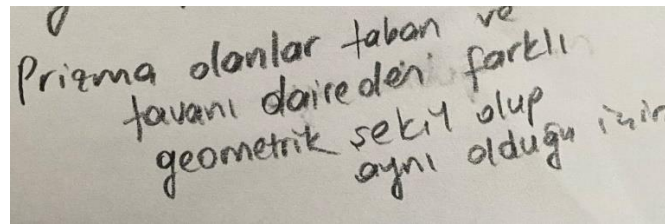 Prizma olanlar taban ve
tavanı daireden farklı
geometrik şekil olup
aynı olduğu için